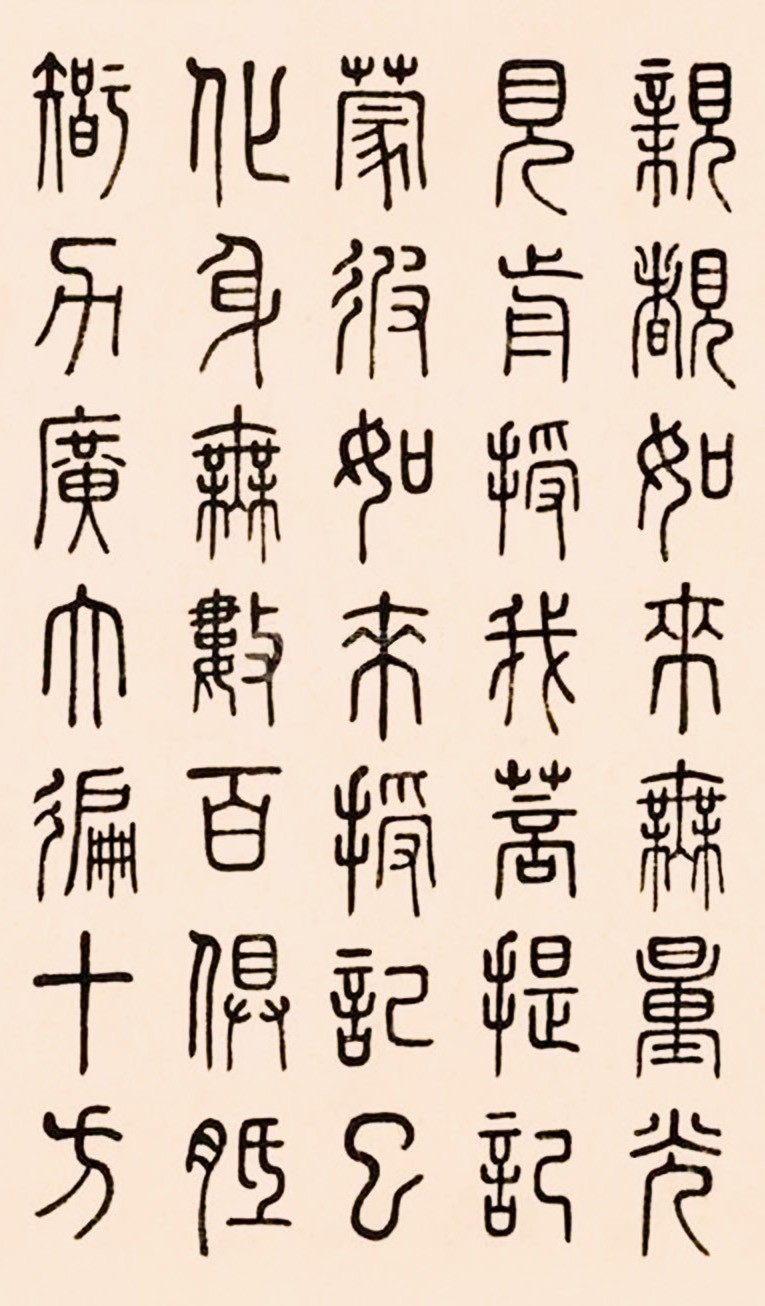 親覩如來無量光
見肯授我菩提記
蒙彼如來授記已
化身無數百俱胝
智力廣大徧十方